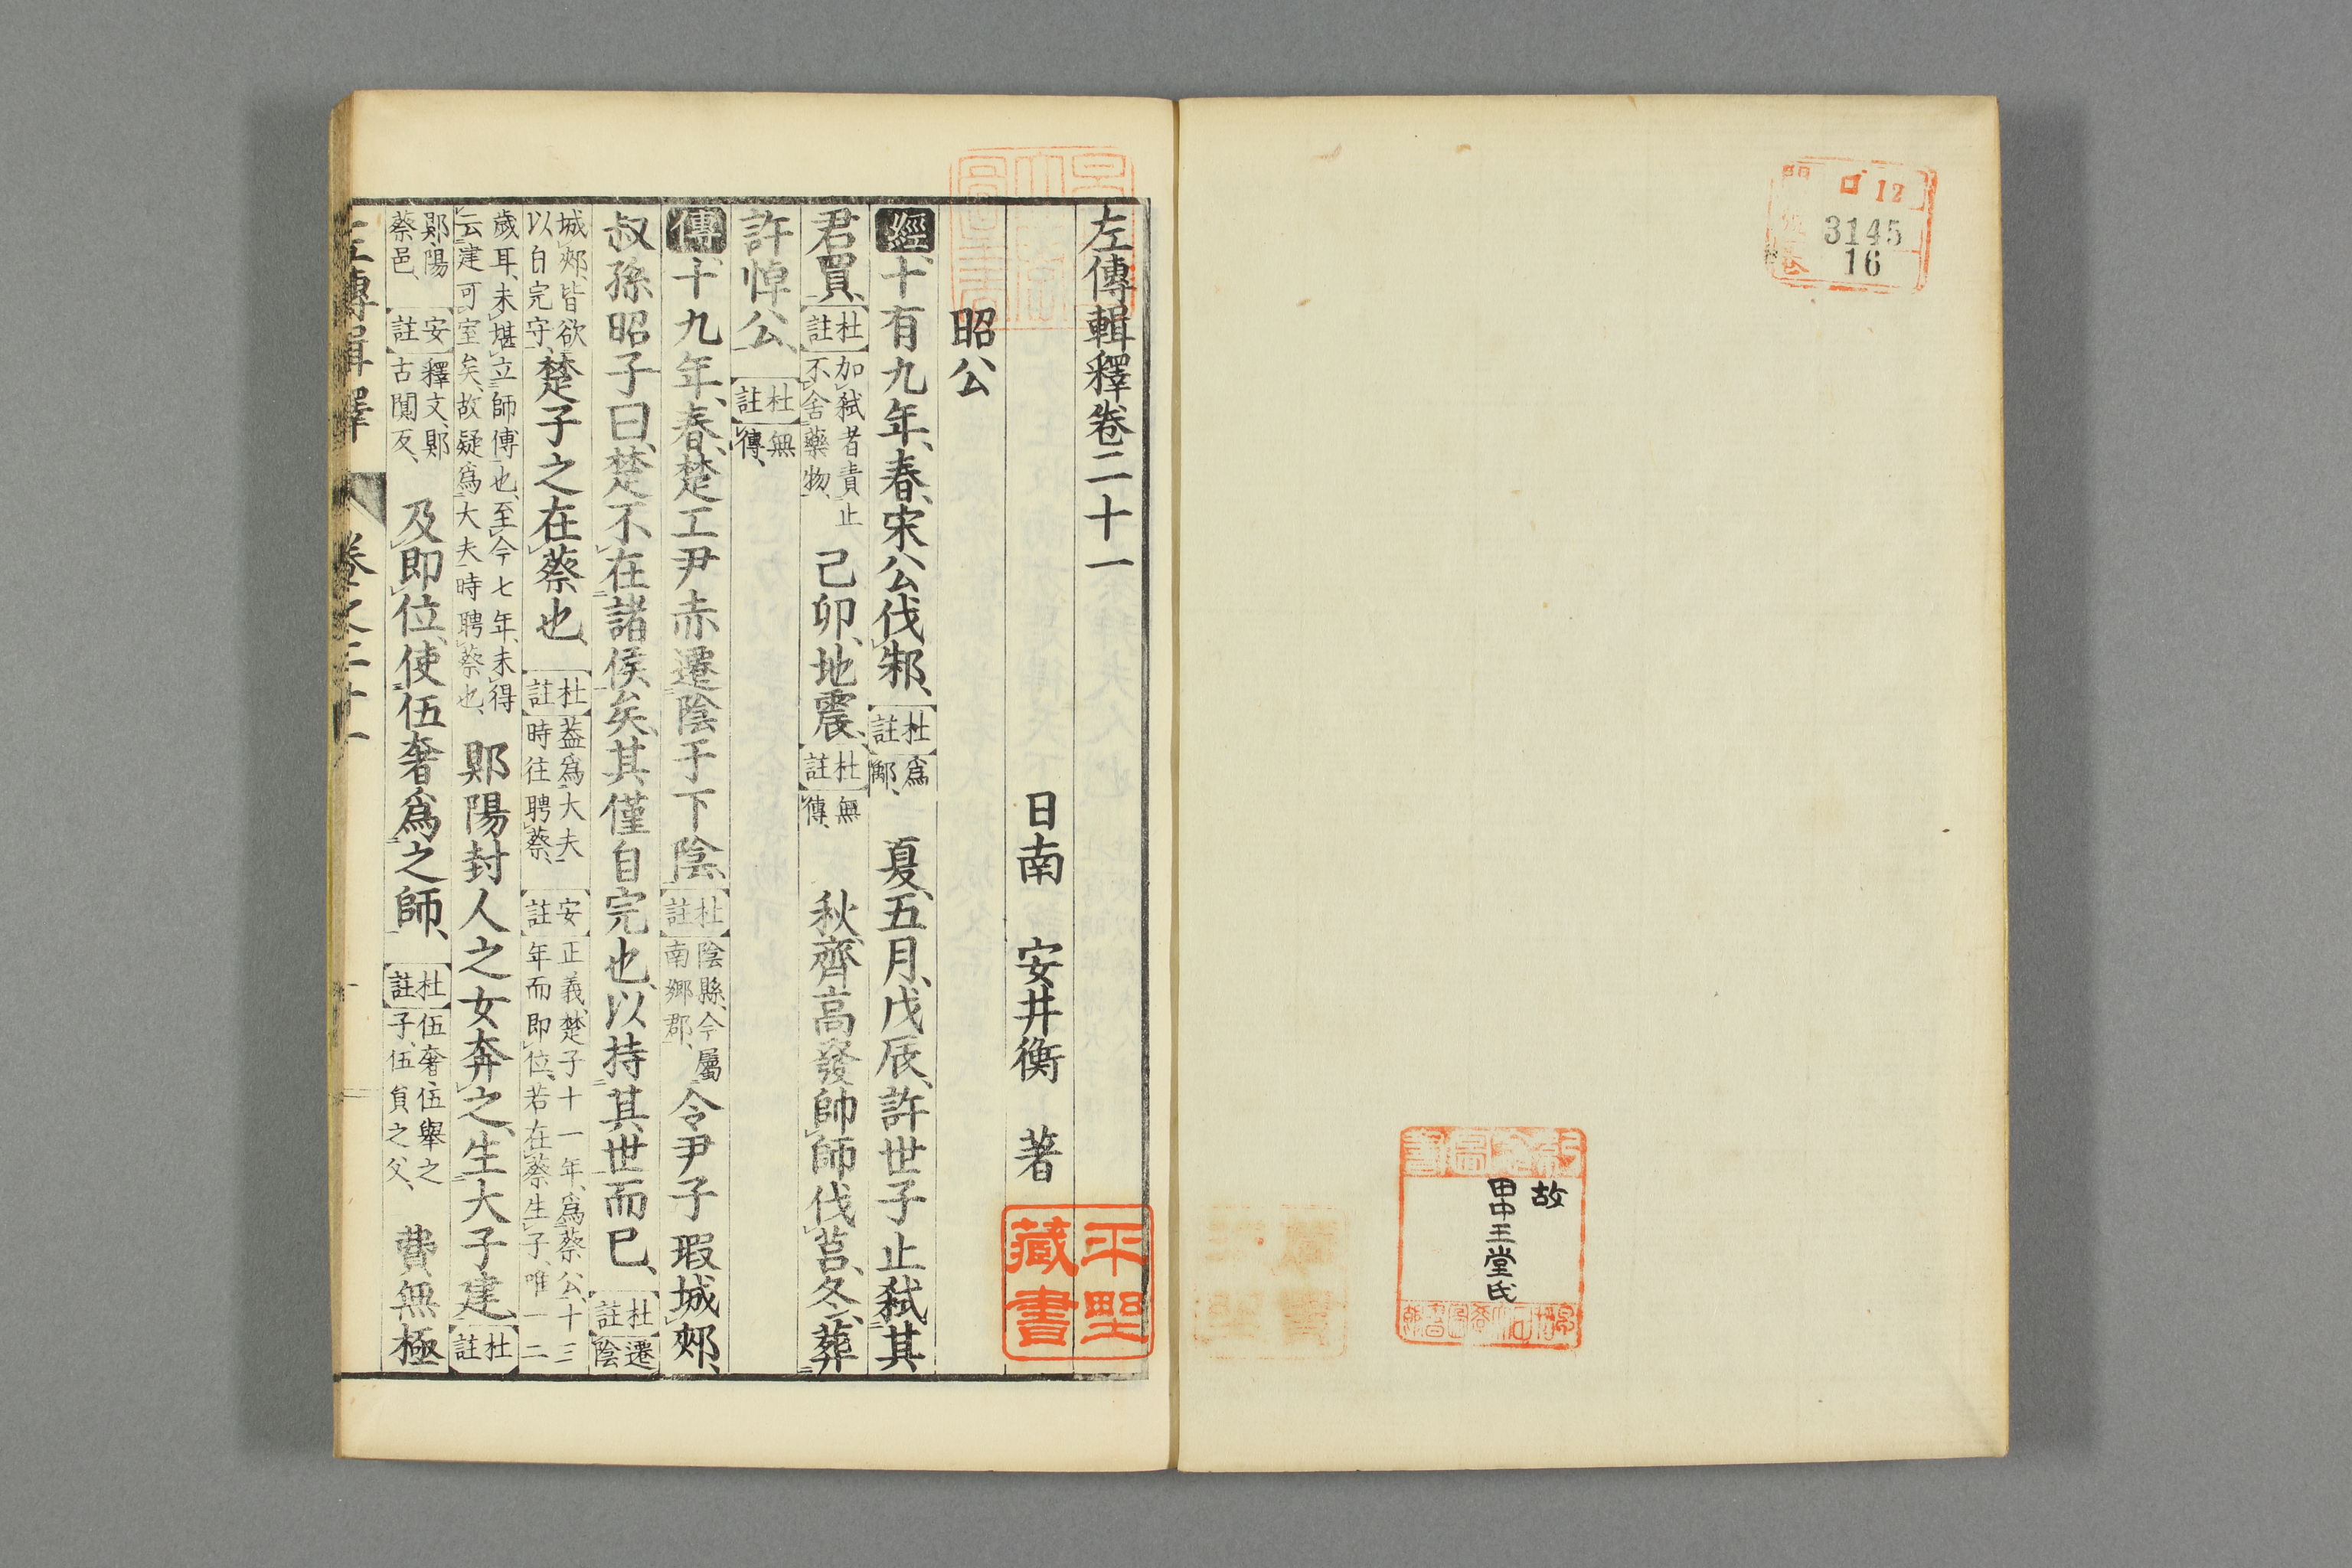 門 ロ 12
3145
16
故
田中王堂氏
左傳輯釋卷二十一
日南 安井衡 著
平野藏書
昭公
經十有九年、春、宋公伐邾、杜註 爲鄅、 夏、五月、戊辰、許世子止弑其
君買、杜註 加弑者責止不舍藥物、 己卯、地震、杜註 無傳、 秋、齊高發帥師伐莒、冬、葬
許悼公、杜註 無傳、
傳十九年、春、楚工尹赤遷陰于下陰、杜註 陰縣、今屬南鄉郡、 令尹子瑕城郟、
叔孫昭子曰、楚不在諸侯矣、其僅自完也、以持其世而已、杜註 遷陰
城郟、皆欲以自完守、 楚子之在蔡也、杜註 蓋爲大夫時往聘蔡、 安註 正義、楚子十一年、爲蔡公、十三年而即位、若在蔡生子、唯一二
歲耳、未堪立師傅也、至今七年、未得云建可室矣、故疑爲大夫時聘蔡也、 郹陽封人之女奔之、生大子建、杜註
郹陽蔡邑、 安註 釋文、郹古闃反、 及即位、使伍奢爲之師、杜註 伍奢、伍舉之子、伍員之父、 費無極
左傳輯釋 卷之二十一 一